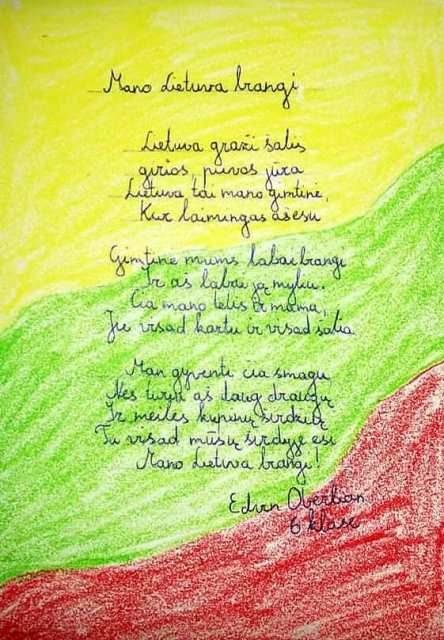 Mano Lietuva brangi
Lietuva graži šalis
girios, pievos jūra
Lietuva tai mano gimtinė,
Kur laimingas aš esu
Gimtinė mums labai brangi
Ir aš labai ją myliu.
Čia mano tėtis ir mama,
Jie visad kartu ir visad šalia
Man gyventi čia smagu
Nes turiu aš daug draugų
Ir meilės kupiną širdžių
Tu visad mūsų širdyje esi
Mano Lietuva brangi!
Edvin Oberlian
6 klasė